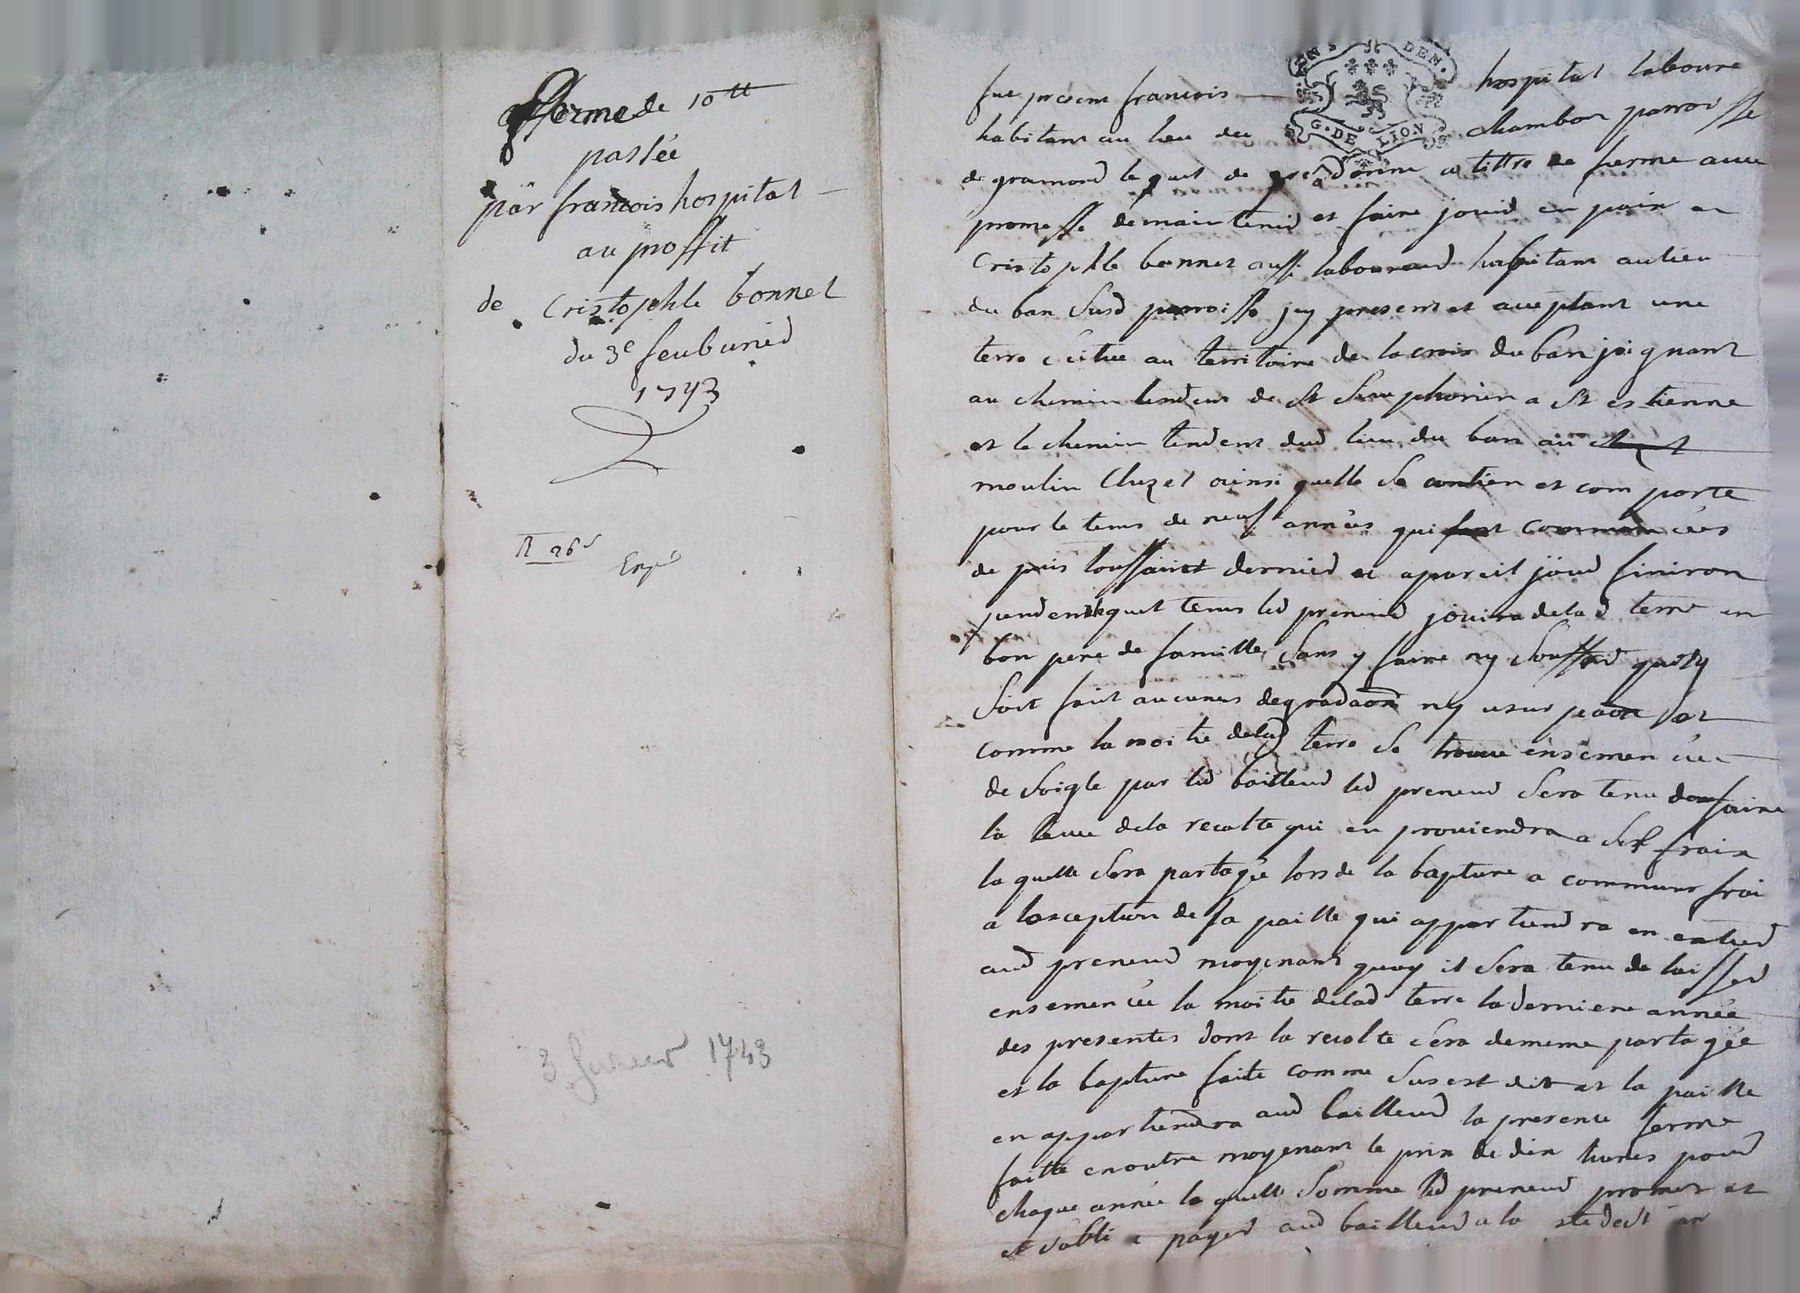 fferme de 10 tt
passée
par francois hospital
au proffit
de Cristophle bonnet
du 3e feubvried
1743
R 26 s
Expé
3 1743
GEN. DEN.
G. DE LION
fut present francois hospital laboure
habitant au lieu du chambon parroisse
de gramond le quel de gre a donne a tittre de ferme avec
promesse de maintenid et faire jouid en paix a
Cristophle bonnet aussi labouraud habitant au lieu
du ban susd parroisse jcy present et aceptant une
terre scitue au territoire de la croix du ban joignant
au chemin tendant de st simphorien a st estienne
et le chemin tendent dud lieu du ban au
moulin Cluzel ainsi quelle se contien et comporte
pour le tems de neuf années qui sont commencées
depuis toussaint dernied et a pareil joud finiron
pendent lequel tems led preneud jouira de lad terre en
bon pere de famille sans y faire ny souffrid quily
soit fait aucunes degradaon ny usurpaon et
comme la moitie de lad terre se trouve ensemencée
de soigle par led bailleud led preneud sera tenu de faire
la levee de la recolte qui en proviendra a ses frais
la quelle sera partagée lors de la bapture a communs frai
a lexception de la paille qui appartiendra en entied
aud preneud moyenant quoy il sera tenu de laissed
ensemencée la moitie de lad terre la derniere année
des presentes dont la recolte sera de meme partagée
et la bapture faite comme sus est dit et la paille
en appartiendra aud bailleud la presente ferme
faitte en outre moyenant le prix de dix livres poud
chaque année la quelle somme led preneud promet et
soblige payed aud bailleud a la